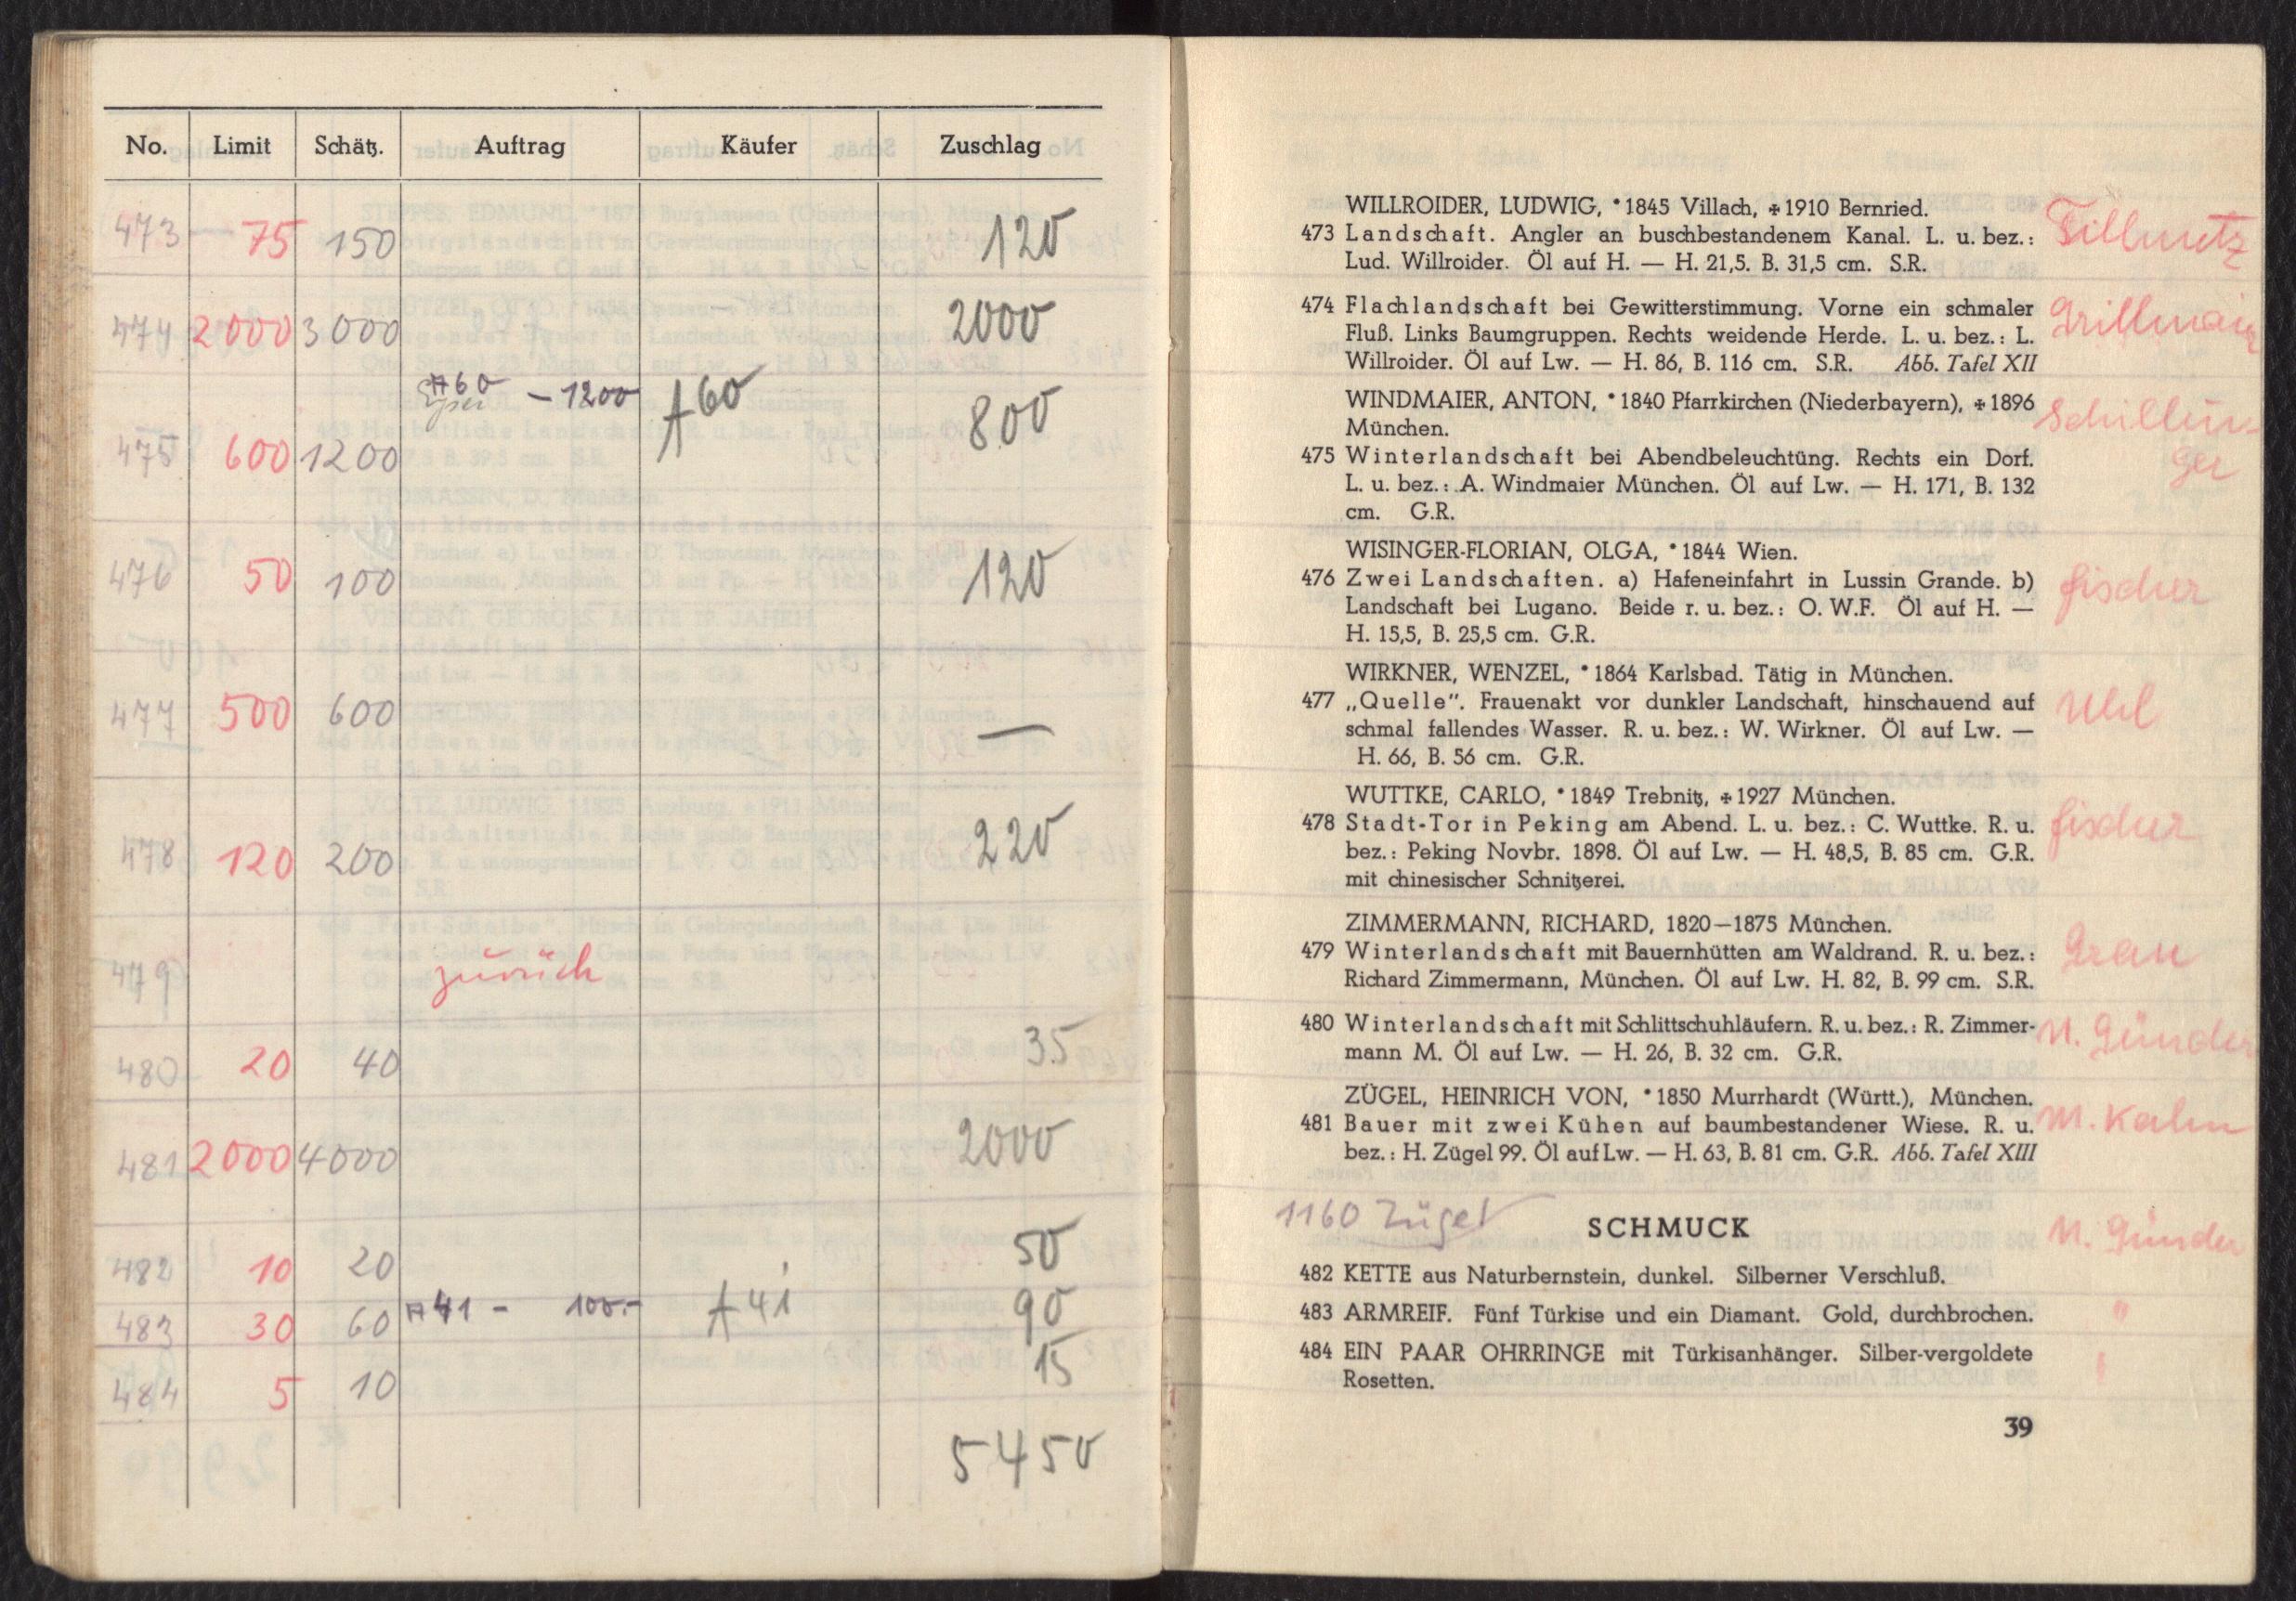 No. Limit Schätz. Auftrag Käufer Zuschlag
473 75 150 120
474 2000 3000 2000
A60 — 1200 A60
475 600 1200 800
476 50 100 120
477 500 600 —
478 120 200 220
479 zurück
480 20 40 35
481 2000 4000 2000
482 10 20 50
483 30 60 A41 - 100.- A41 90
484 5 10 15
5450
WILLROIDER, LUDWIG, *1845 Villach, ✠1910 Bernried.
473 Landschaft. Angler an buschbestandenem Kanal. L. u. bez.:
Lud. Willroider. Öl auf H. — H. 21,5. B. 31,5 cm. S.R.
474 Flachlandschaft bei Gewitterstimmung. Vorne ein schmaler
Fluß. Links Baumgruppen. Rechts weidende Herde. L. u. bez.: L.
Willroider. Öl auf Lw. — H. 86, B. 116 cm. S.R. Abb. Tafel XII
WINDMAIER, ANTON, *1840 Pfarrkirchen (Niederbayern), ✠1896
München.
Schillin-
ger
475 Winterlandschaft bei Abendbeleuchtüng. Rechts ein Dorf.
L. u. bez.: A. Windmaier München. Öl auf Lw. — H. 171, B. 132
cm. G.R.
WISINGER-FLORIAN, OLGA, *1844 Wien.
476 Zwei Landschaften. a) Hafeneinfahrt in Lussin Grande. b) Fischer
Landschaft bei Lugano. Beide r. u. bez.: O. W.F. Öl auf H. —
H. 15,5, B. 25,5 cm. G.R.
WIRKNER, WENZEL, *1864 Karlsbad. Tätig in München.
477 „Quelle". Frauenakt vor dunkler Landschaft, hinschauend auf Uhl
schmal fallendes Wasser. R. u. bez.: W. Wirkner. Öl auf Lw. —
H. 66, B. 56 cm. G.R.
WUTTKE, CARLO, *1849 Trebnitz, ✠1927 München.
478 Stadt-Tor in Peking am Abend. L. u. bez.: C. Wuttke. R. u. Fischer
bez.: Peking Novbr. 1898. Öl auf Lw. — H. 48,5, B. 85 cm. G.R.
mit chinesischer Schnitzerei.
ZIMMERMANN, RICHARD, 1820—1875 München.
479 Winterlandschaft mit Bauernhütten am Waldrand. R. u. bez.: Grau
Richard Zimmermann, München. Öl auf Lw. H. 82, B. 99 cm. S.R.
480 Winterlandschaft mit Schlittschuhläufern. R. u. bez.: R. Zimmer- M. Günder
mann M. Öl auf Lw. — H. 26, B. 32 cm. G.R.
ZÜGEL, HEINRICH VON, *1850 Murrhardt (Württ.), München.
481 Bauer mit zwei Kühen auf baumbestandener Wiese. R. u. M. Kahn
bez.: H. Zügel 99. Öl auf Lw. — H. 63, B. 81 cm. G.R. Abb. Tafel XIII
1160 Zügel
SCHMUCK
M. Günder
482 KETTE aus Naturbernstein, dunkel. Silberner Verschluß.
483 ARMREIF. Fünf Türkise und ein Diamant. Gold, durchbrochen. "
484 EIN PAAR OHRRINGE mit Türkisanhänger. Silber-vergoldete
Rosetten.
39